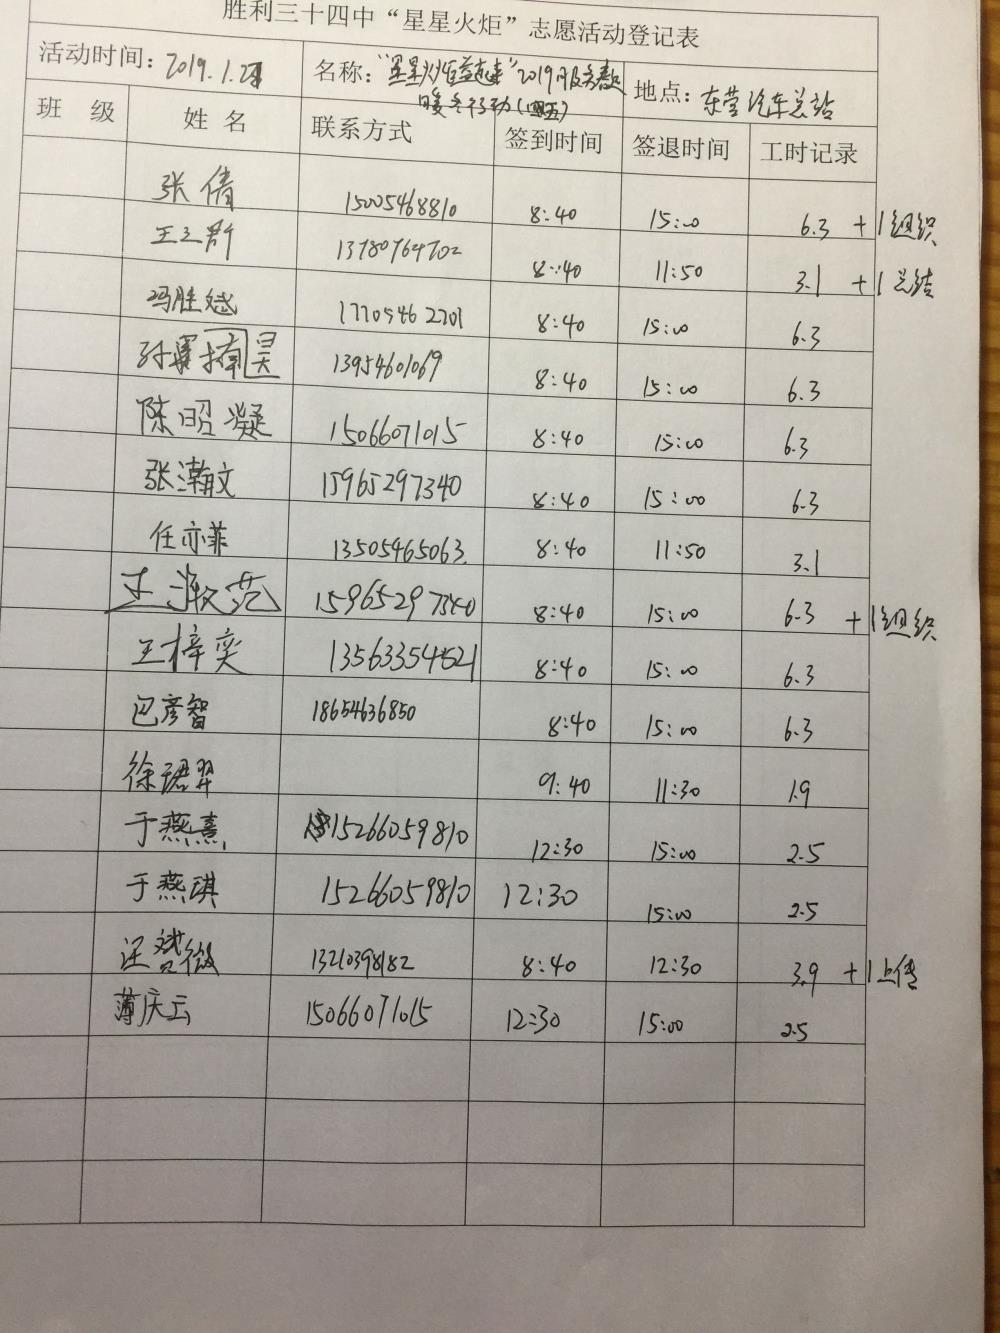 胜利三十四中“星星火炬”志愿活动登记表
活动时间: 2019.1. 名称: “星星火炬益起来”2019 地点: 东营汽车总站
暖冬行动
班 级 姓 名 联系方式 签到时间 签退时间 工时记录
张倩 15005468810 8:40 15:00 6.3 +1组织
王立新 13780764702 8:40 11:50 3.1 +1总结
冯胜斌 17705462701 8:40 15:00 6.3
孙 昊 13954601069 8:40 15:00 6.3
陈昭凝 15066071015 8:40 15:00 6.3
张瀚文 15965297340 8:40 15:00 6.3
任亦菲 13505465063 8:40 11:50 3.1
王淑范 15965297340 8:40 15:00 6.3 +1组织
王梓奕 13563354521 8:40 15:00 6.3
巴彦智 18654636850 8:40 15:00 6.3
徐珺羿 9:40 11:30 1.9
于燕熹 15266059810 12:30 15:00 2.5
于燕琪 15266059810 12:30 15:00 2.5
汪赟微 13210398182 8:40 12:30 3.9 +1上传
薄庆云 15066071015 12:30 15:00 2.5